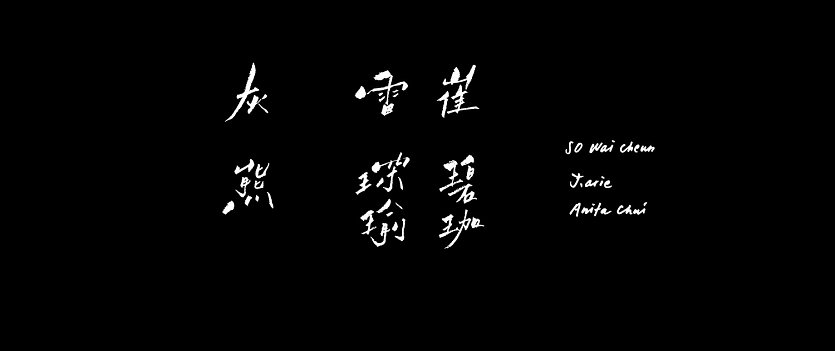 灰熊
雷琛瑜
崔碧珈
SO Wai cheun
J.arie
Anita Chui